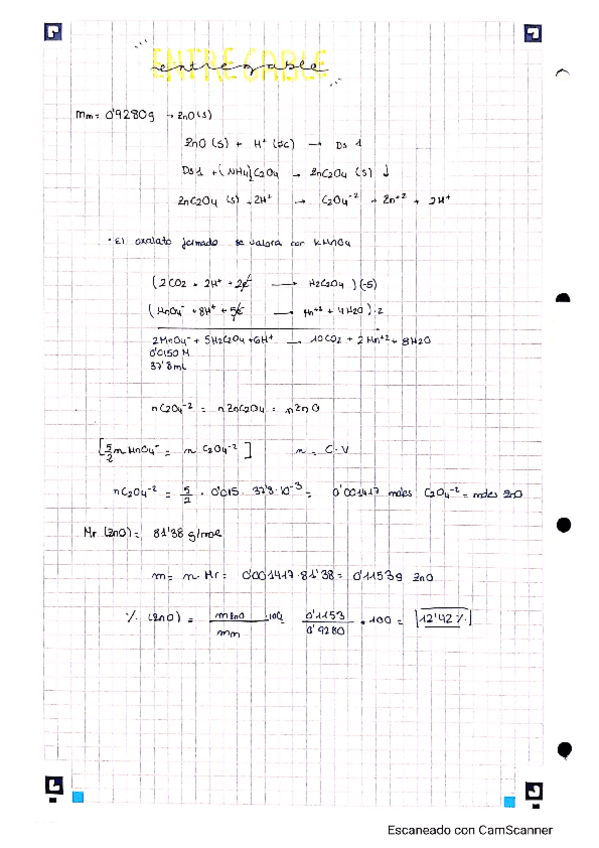 ENTREGABLE
entregable
mm = 0'9280g → ZnO(s)
ZnO (s) + H⁺ (ac) → Ds 1
Ds 1 + (NH4)C2O4 → ZnC2O4 (s) ↓
ZnC2O4 (s) + 2H⁺ → C2O4⁻² + Zn⁺² + 2H⁺
· El oxalato formado se valora con KMnO4
(2CO2 + 2H⁺ + 2e⁻ → H2C2O4) (-5)
(MnO4⁻ + 8H⁺ + 5e⁻ → Mn⁺² + 4H2O) · 2
2MnO4⁻ + 5H2C2O4 + 6H⁺ → 10CO2 + 2Mn⁺² + 8H2O
0'0150 M
37'8 mL
nC2O4⁻² = nZnC2O4 = nZnO
[5/2 n MnO4⁻ = n C2O4⁻²] n = C·V
nC2O4⁻² = 5/2 · 0'015 · 37'8·10⁻³ = 0'001417 moles C2O4⁻² = moles ZnO
Mr (ZnO) = 81'38 g/mol
m = n·Mr = 0'001417·81'38 = 0'1153g ZnO
% (ZnO) = mZnO/mm ·100 = 0'1153/0'9280 · 100 = 12'42%
Escaneado con CamScanner